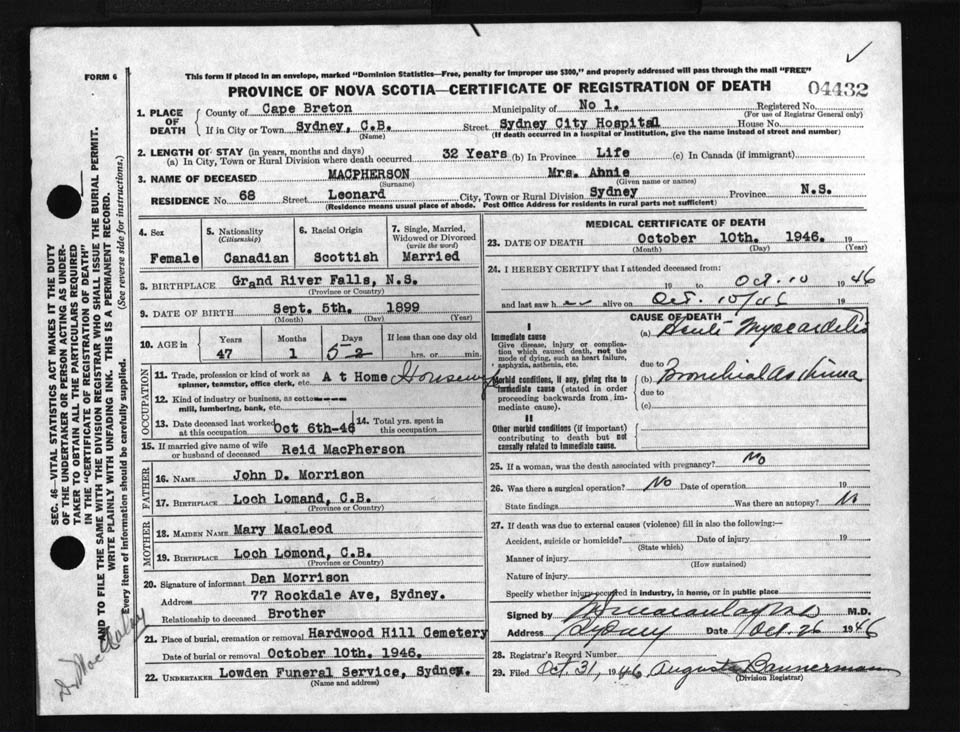 FORM 6
This form if placed in an envelope, marked "Dominion Statistics—Free, penalty for improper use $300," and properly addressed will pass through the mail "FREE"
PROVINCE OF NOVA SCOTIA—CERTIFICATE OF REGISTRATION OF DEATH
04432
1. PLACE OF DEATH
County of Cape Breton Municipality of No 1. Registered No.
(For use of Registrar General only)
If in City or Town Sydney, C.B. Street Sydney City Hospital House No.
(Name) (If death occurred in a hospital or institution, give the name instead of street and number)
2. LENGTH OF STAY (in years, months and days)
(a) In City, Town or Rural Division where death occurred 32 Years (b) In Province Life (c) In Canada (if immigrant)
3. NAME OF DECEASED MACPHERSON Mrs. Annie
(Surname) (Given name or names)
RESIDENCE No. 68 Street Leonard City, Town or Rural Division Sydney Province N.S.
(Residence means usual place of abode. Post Office Address for residents in rural parts not sufficient)
4. Sex
Female
5. Nationality
(Citizenship)
Canadian
6. Racial Origin
Scottish
7. Single, Married, Widowed or Divorced
(write the word)
Married
8. BIRTHPLACE Grand River Falls, N.S.
(Province or Country)
9. DATE OF BIRTH Sept. 5th. 1899
(Month) (Day) (Year)
10. AGE in
Years Months Days If less than one day old
47 1 5 hrs. or min.
OCCUPATION
11. Trade, profession or kind of work as spinner, teamster, office clerk, etc. At Home Housewife
12. Kind of industry or business, as cotton mill, lumbering, bank, etc.
13. Date deceased last worked at this occupation Oct 6th-46
14. Total yrs. spent in this occupation
15. If married give name of wife or husband of deceased Reid MacPherson
FATHER
16. NAME John D. Morrison
17. BIRTHPLACE Loch Lomand, C.B.
(Province or Country)
MOTHER
18. MAIDEN NAME Mary MacLeod
19. BIRTHPLACE Loch Lomond, C.B.
(Province or Country)
20. Signature of informant Dan Morrison
Address 77 Rockdale Ave, Sydney.
Relationship to deceased Brother
21. Place of burial, cremation or removal Hardwood Hill Cemetery
Date of burial or removal October 10th. 1946.
22. UNDERTAKER Lowden Funeral Service, Sydney.
(Name and address)
MEDICAL CERTIFICATE OF DEATH
23. DATE OF DEATH October 10th. 1946. 19
(Month) (Day) (Year)
24. I HEREBY CERTIFY that I attended deceased from:
19 to Oct. 10 1946
and last saw her alive on Oct. 10/46 19
CAUSE OF DEATH
I
Immediate cause
Give disease, injury or complication which caused death, not the mode of dying, such as heart failure, asphyxia, asthenia, etc.
(a) Acute Myocarditis
due to
Morbid conditions, if any, giving rise to immediate cause (stated in order proceeding backwards from immediate cause).
(b) Bronchial Asthma
due to
(c)
II
Other morbid conditions (if important) contributing to death but not causally related to immediate cause.
25. If a woman, was the death associated with pregnancy? No
26. Was there a surgical operation? No Date of operation 19
State findings Was there an autopsy? No
27. If death was due to external causes (violence) fill in also the following:—
Accident, suicide or homicide? Date of injury 19
(State which)
Manner of injury
(How sustained)
Nature of injury
Specify whether injury occurred in industry, in home, or in public place
Signed by M.D.
Address Sydney Date Oct. 26 1946
28. Registrar's Record Number
29. Filed Oct. 31, 1946 Augusta Bannerman
(Division Registrar)
SEC. 46—VITAL STATISTICS ACT MAKES IT THE DUTY OF THE UNDERTAKER OR PERSON ACTING AS UNDERTAKER TO OBTAIN ALL THE PARTICULARS REQUIRED IN THE "CERTIFICATE OF REGISTRATION OF DEATH" AND TO FILE THE SAME WITH THE DIVISION REGISTRAR WHO SHALL ISSUE THE BURIAL PERMIT.
WRITE PLAINLY WITH UNFADING INK. THIS IS A PERMANENT RECORD.
Every item of information should be carefully supplied. (See reverse side for instructions.)